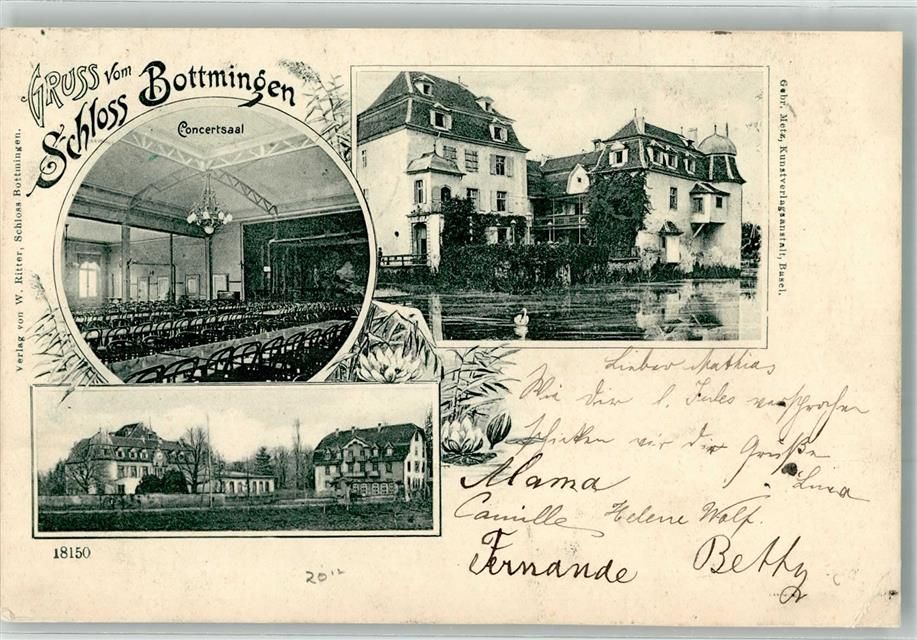 Gruss vom
Schloss Bottmingen
Concertsaal
Verlag von W. Ritter, Schloss Bottmingen.
Gebr. Metz, Kunstverlagsanstalt, Basel.
Lieber Mathias
Wie dir l. Jules versprochen
schicken wir dir Grüße
Mama
Camille Helene Wolf.
Fernande Betty
18150